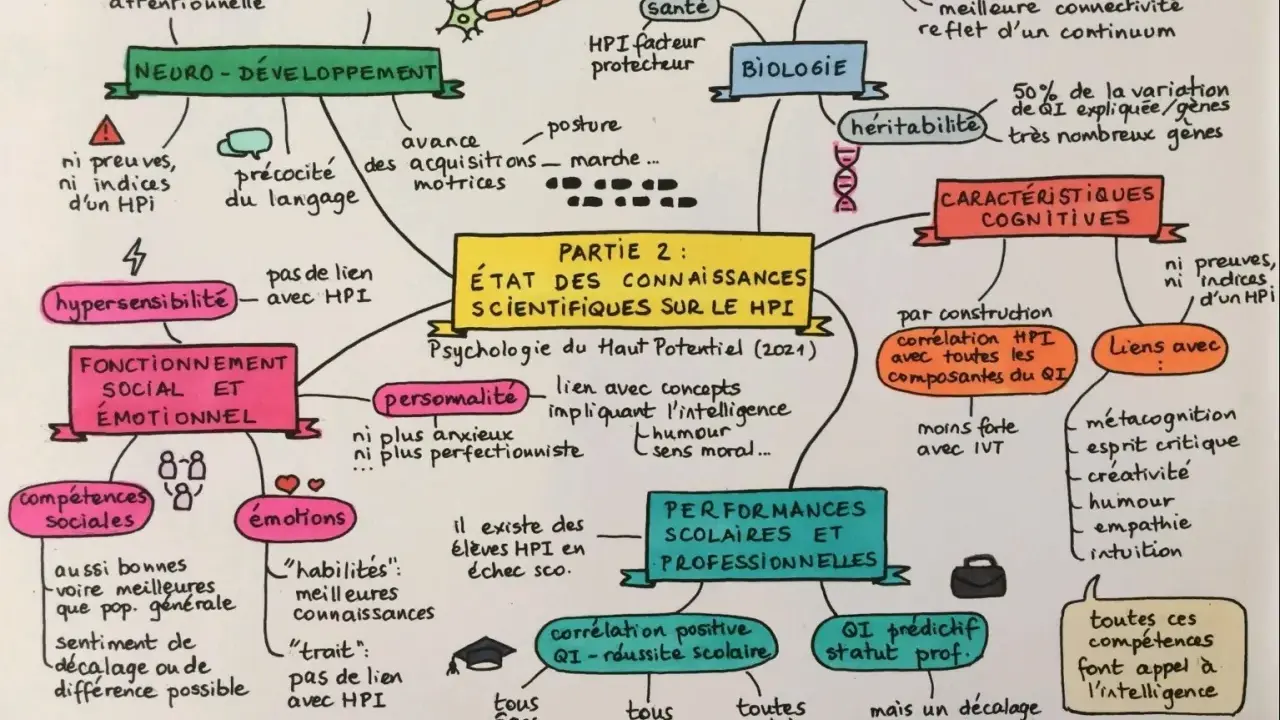 attentionnelle
NEURO-DÉVELOPPEMENT
ni preuves,
ni indices
d'un HPi
précocité
du langage
avance
des acquisitions
motrices
posture
marche ...
santé
HPI facteur
protecteur
BIOLOGIE
meilleure connectivité
reflet d'un continuum
héritabilité
50% de la variation
de QI expliquée/gènes
très nombreux gènes
CARACTÉRISTIQUES
COGNITIVES
par construction
corrélation HPI
avec toutes les
composantes du QI
moins forte
avec IVT
ni preuves,
ni indices
d'un HPi
Liens avec
:
métacognition
esprit critique
créativité
humour
empathie
intuition
toutes ces
compétences
font appel à
l'intelligence
PARTIE 2 :
ÉTAT DES CONNAISSANCES
SCIENTIFIQUES SUR LE HPI
Psychologie du Haut Potentiel (2021)
hypersensibilité
pas de lien
avec HPI
FONCTIONNEMENT
SOCIAL ET
ÉMOTIONNEL
personnalité
ni plus anxieux
ni plus perfectionniste
...
lien avec concepts
impliquant l'intelligence
humour
sens moral...
compétences
sociales
aussi bonnes
voire meilleures
que pop. générale
sentiment de
décalage ou de
différence possible
émotions
"habilités":
meilleures
connaissances
"trait":
pas de lien
avec HPI
PERFORMANCES
SCOLAIRES ET
PROFESSIONNELLES
il existe des
élèves HPI en
échec sco.
corrélation positive
QI - réussite scolaire
tous
tous
toutes
QI prédictif
statut prof.
mais un décalage